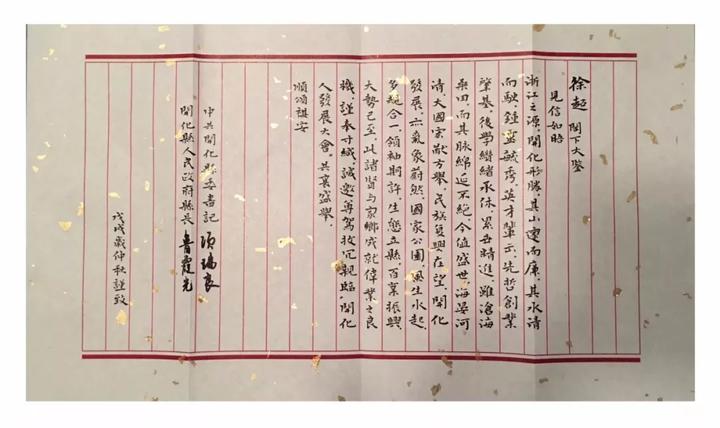 徐超 閣下大鑒
見信如晤
浙江之源，開化形勝，其山邃而廣，其水清
而駛，鍾靈毓秀，英才輩示，先哲創業
肇基，後學繼緒承休，累世精進，雖滄海
桑田，而其脉綿延不絕，今值盛世，海晏河
清，大國宏猷方舉，民族复興在望，開化
發展，亦氣象蔚然，國家公園，風生水起，
多規合一，領袖期許，生態立縣，百業振興
大勢已至，此諸賢与家鄉成就偉業之良
機，謹奉寸緘，誠邀尊駕撥冗親臨，開化
人發展大會，共襄盛舉，
順頌祺安
中共開化縣委書記 項瑞良
開化縣人民政府縣長 魯霞光
戊戌歲仲秋謹致